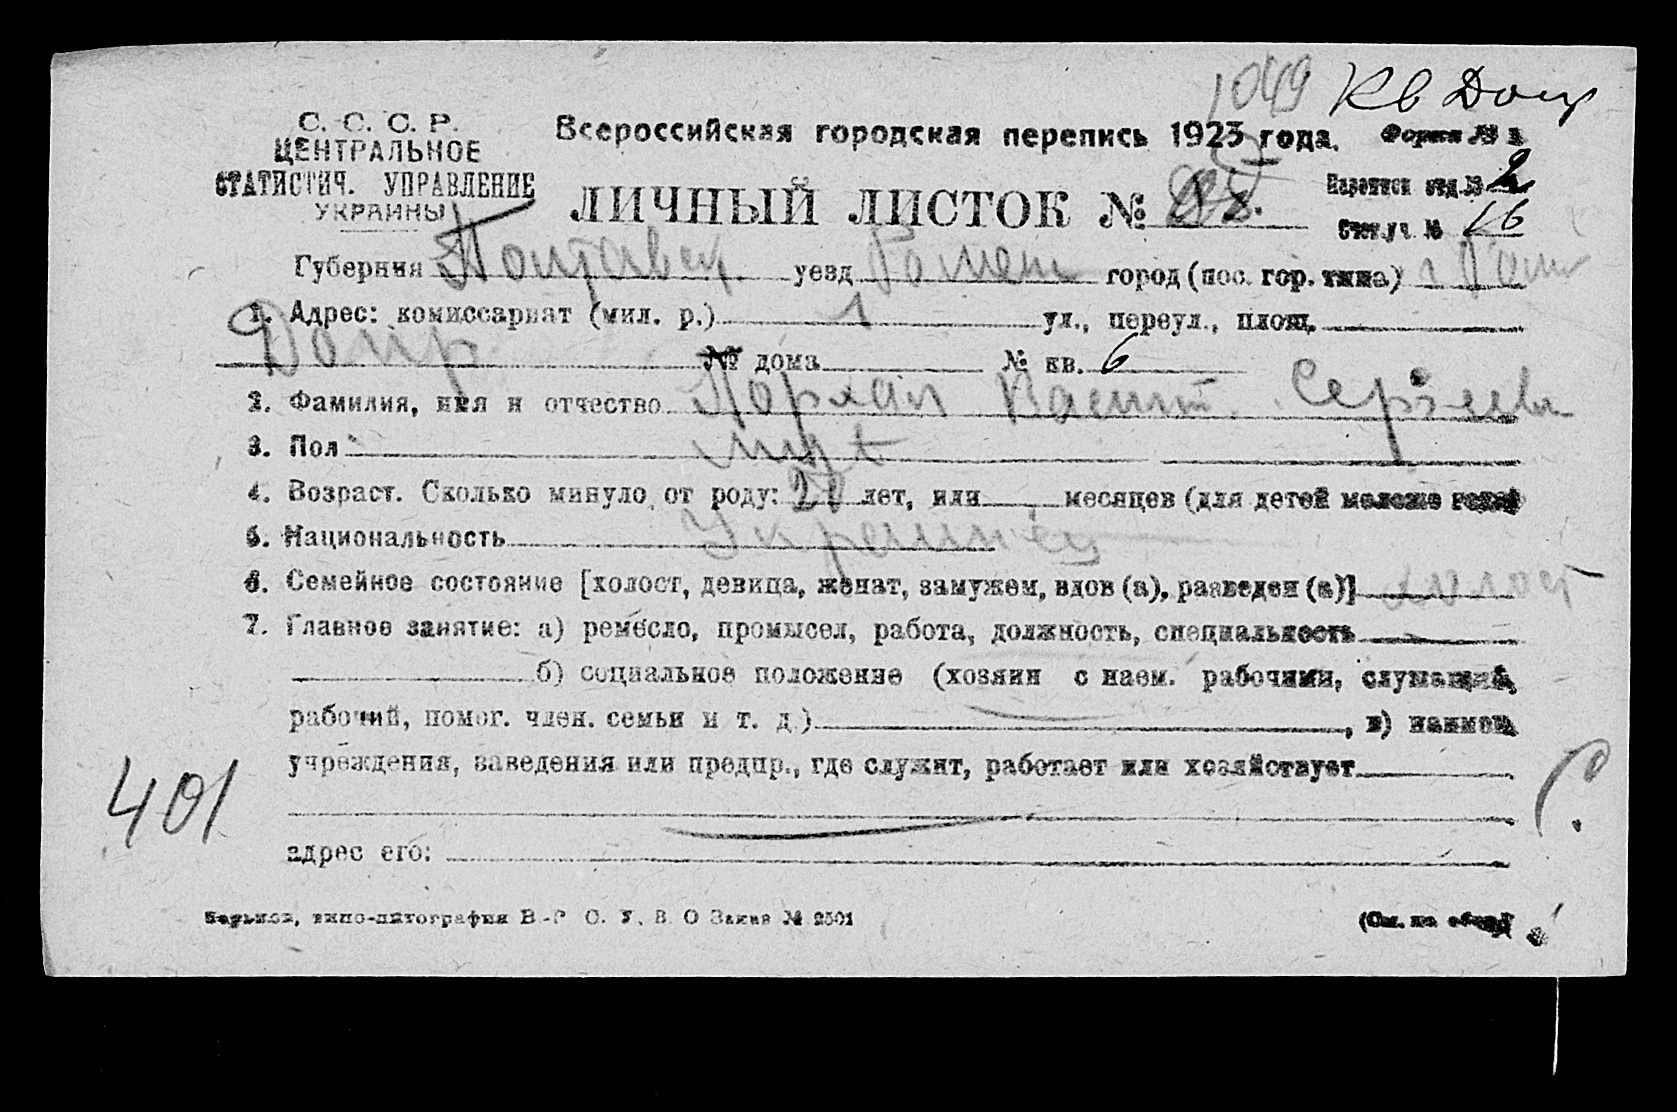 1049 Кв Допр
С. С. С. Р.
ЦЕНТРАЛЬНОЕ
СТАТИСТИЧ. УПРАВЛЕНИЕ
УКРАИНЫ
Всероссийская городская перепись 1923 года. Форма № 1
ЛИЧНЫЙ ЛИСТОК №
Переписн отд. № 2
Счет.уч. № 16
Губерния Полтавск. уезд Ромен город (пос. гор. типа) г Ром
1. Адрес: комиссариат (мил. р.) 1 ул., переул., площ.
Допр № дома № кв. 6
2. Фамилия, имя и отчество Сергеев
3. Пол муж
4. Возраст. Сколько минуло от роду: 28 лет, или месяцев (для детей моложе года)
5. Национальность Украинец
6. Семейное состояние [холост, девица, женат, замужем, вдов (а), разведен (а)] холост
7. Главное занятие: а) ремесло, промысел, работа, должность, специальность
б) социальное положение (хозяин с наем. рабочими, служащий,
рабочий, помог. член. семьи и т. д.) , в) наимен.
учреждения, заведения или предпр., где служит, работает или хозяйствует
401
адрес его:
Харьков, типо-литография В.-Р О. У. В. О Заказ № 2501 (См. на обор.)